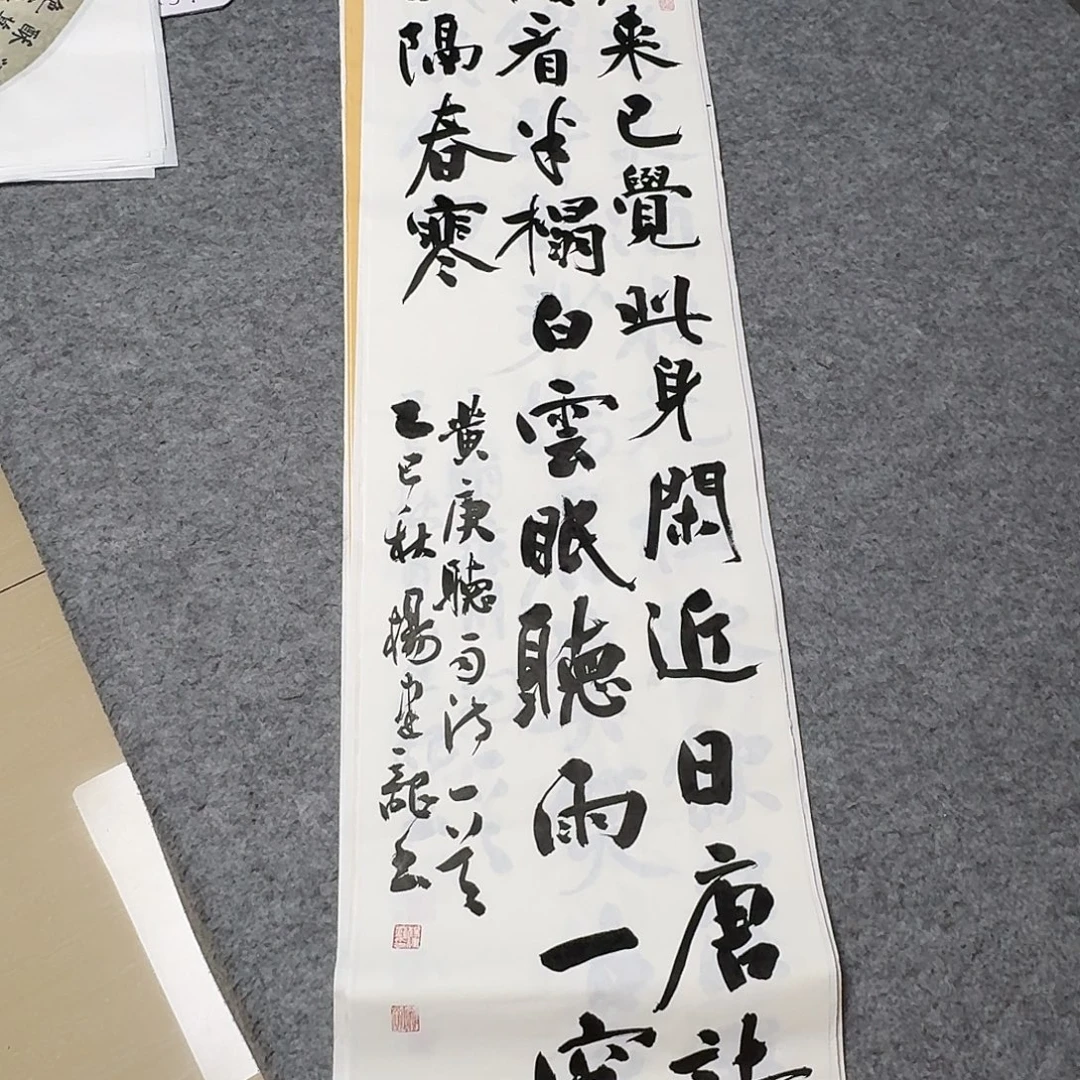 来已覺此身閑近日唐
看半榻白雲眠聽雨一
隔春寒
黄庚聽雨诗一首
乙巳秋楊龍书